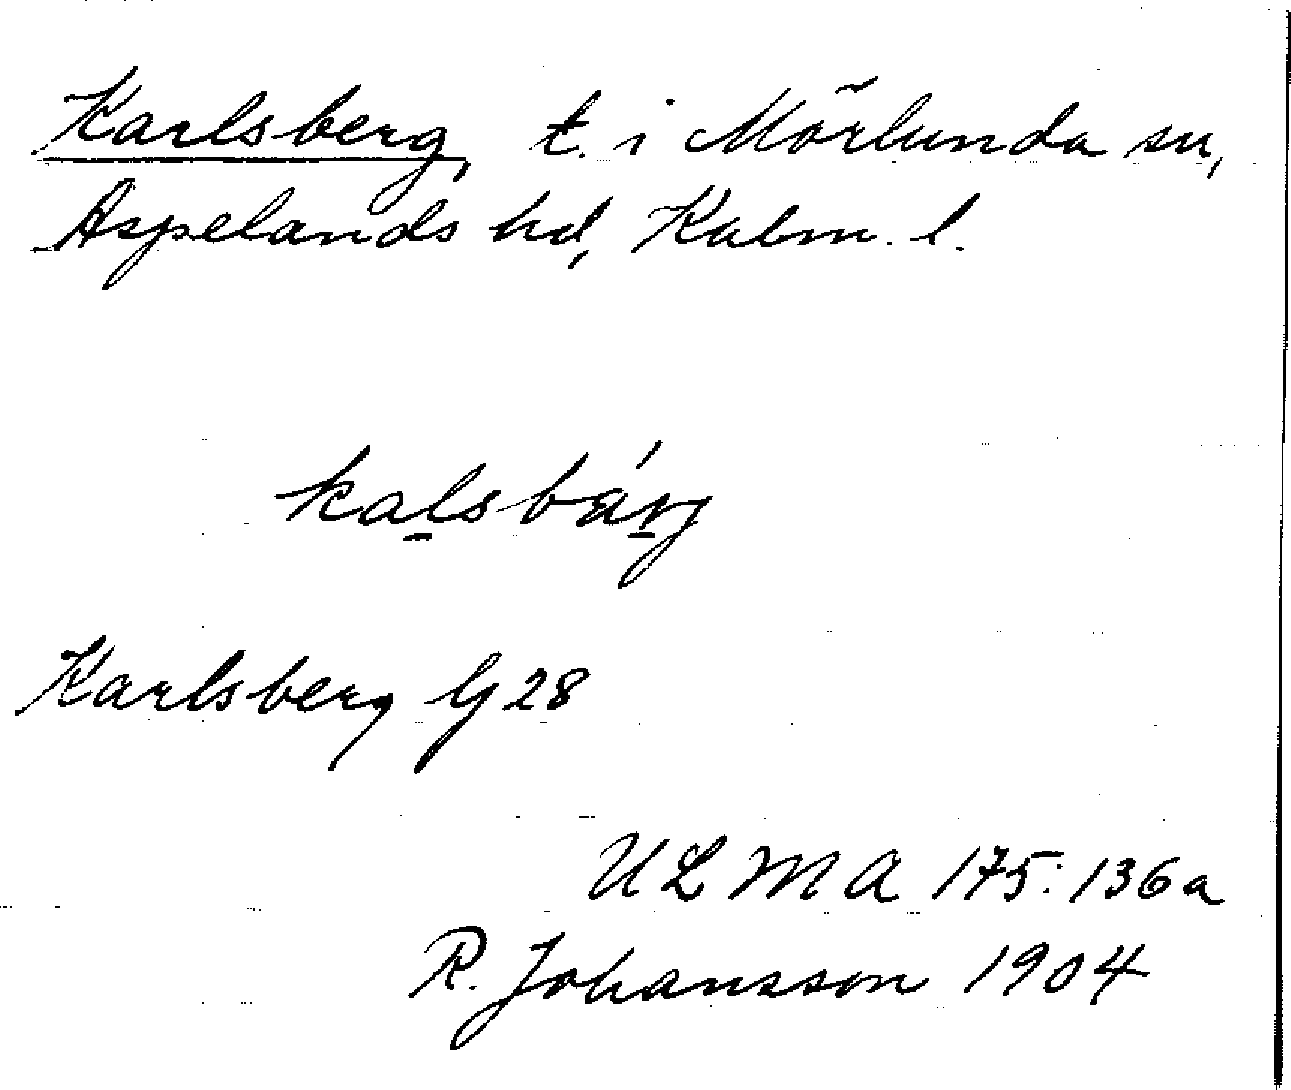 Karlsberg, t. i Mörlunda sn,
Aspelands hd, Kalm. l.
kalsbärj
Karlsberg G 28
ULMA 175:136a
R. Johansson 1904